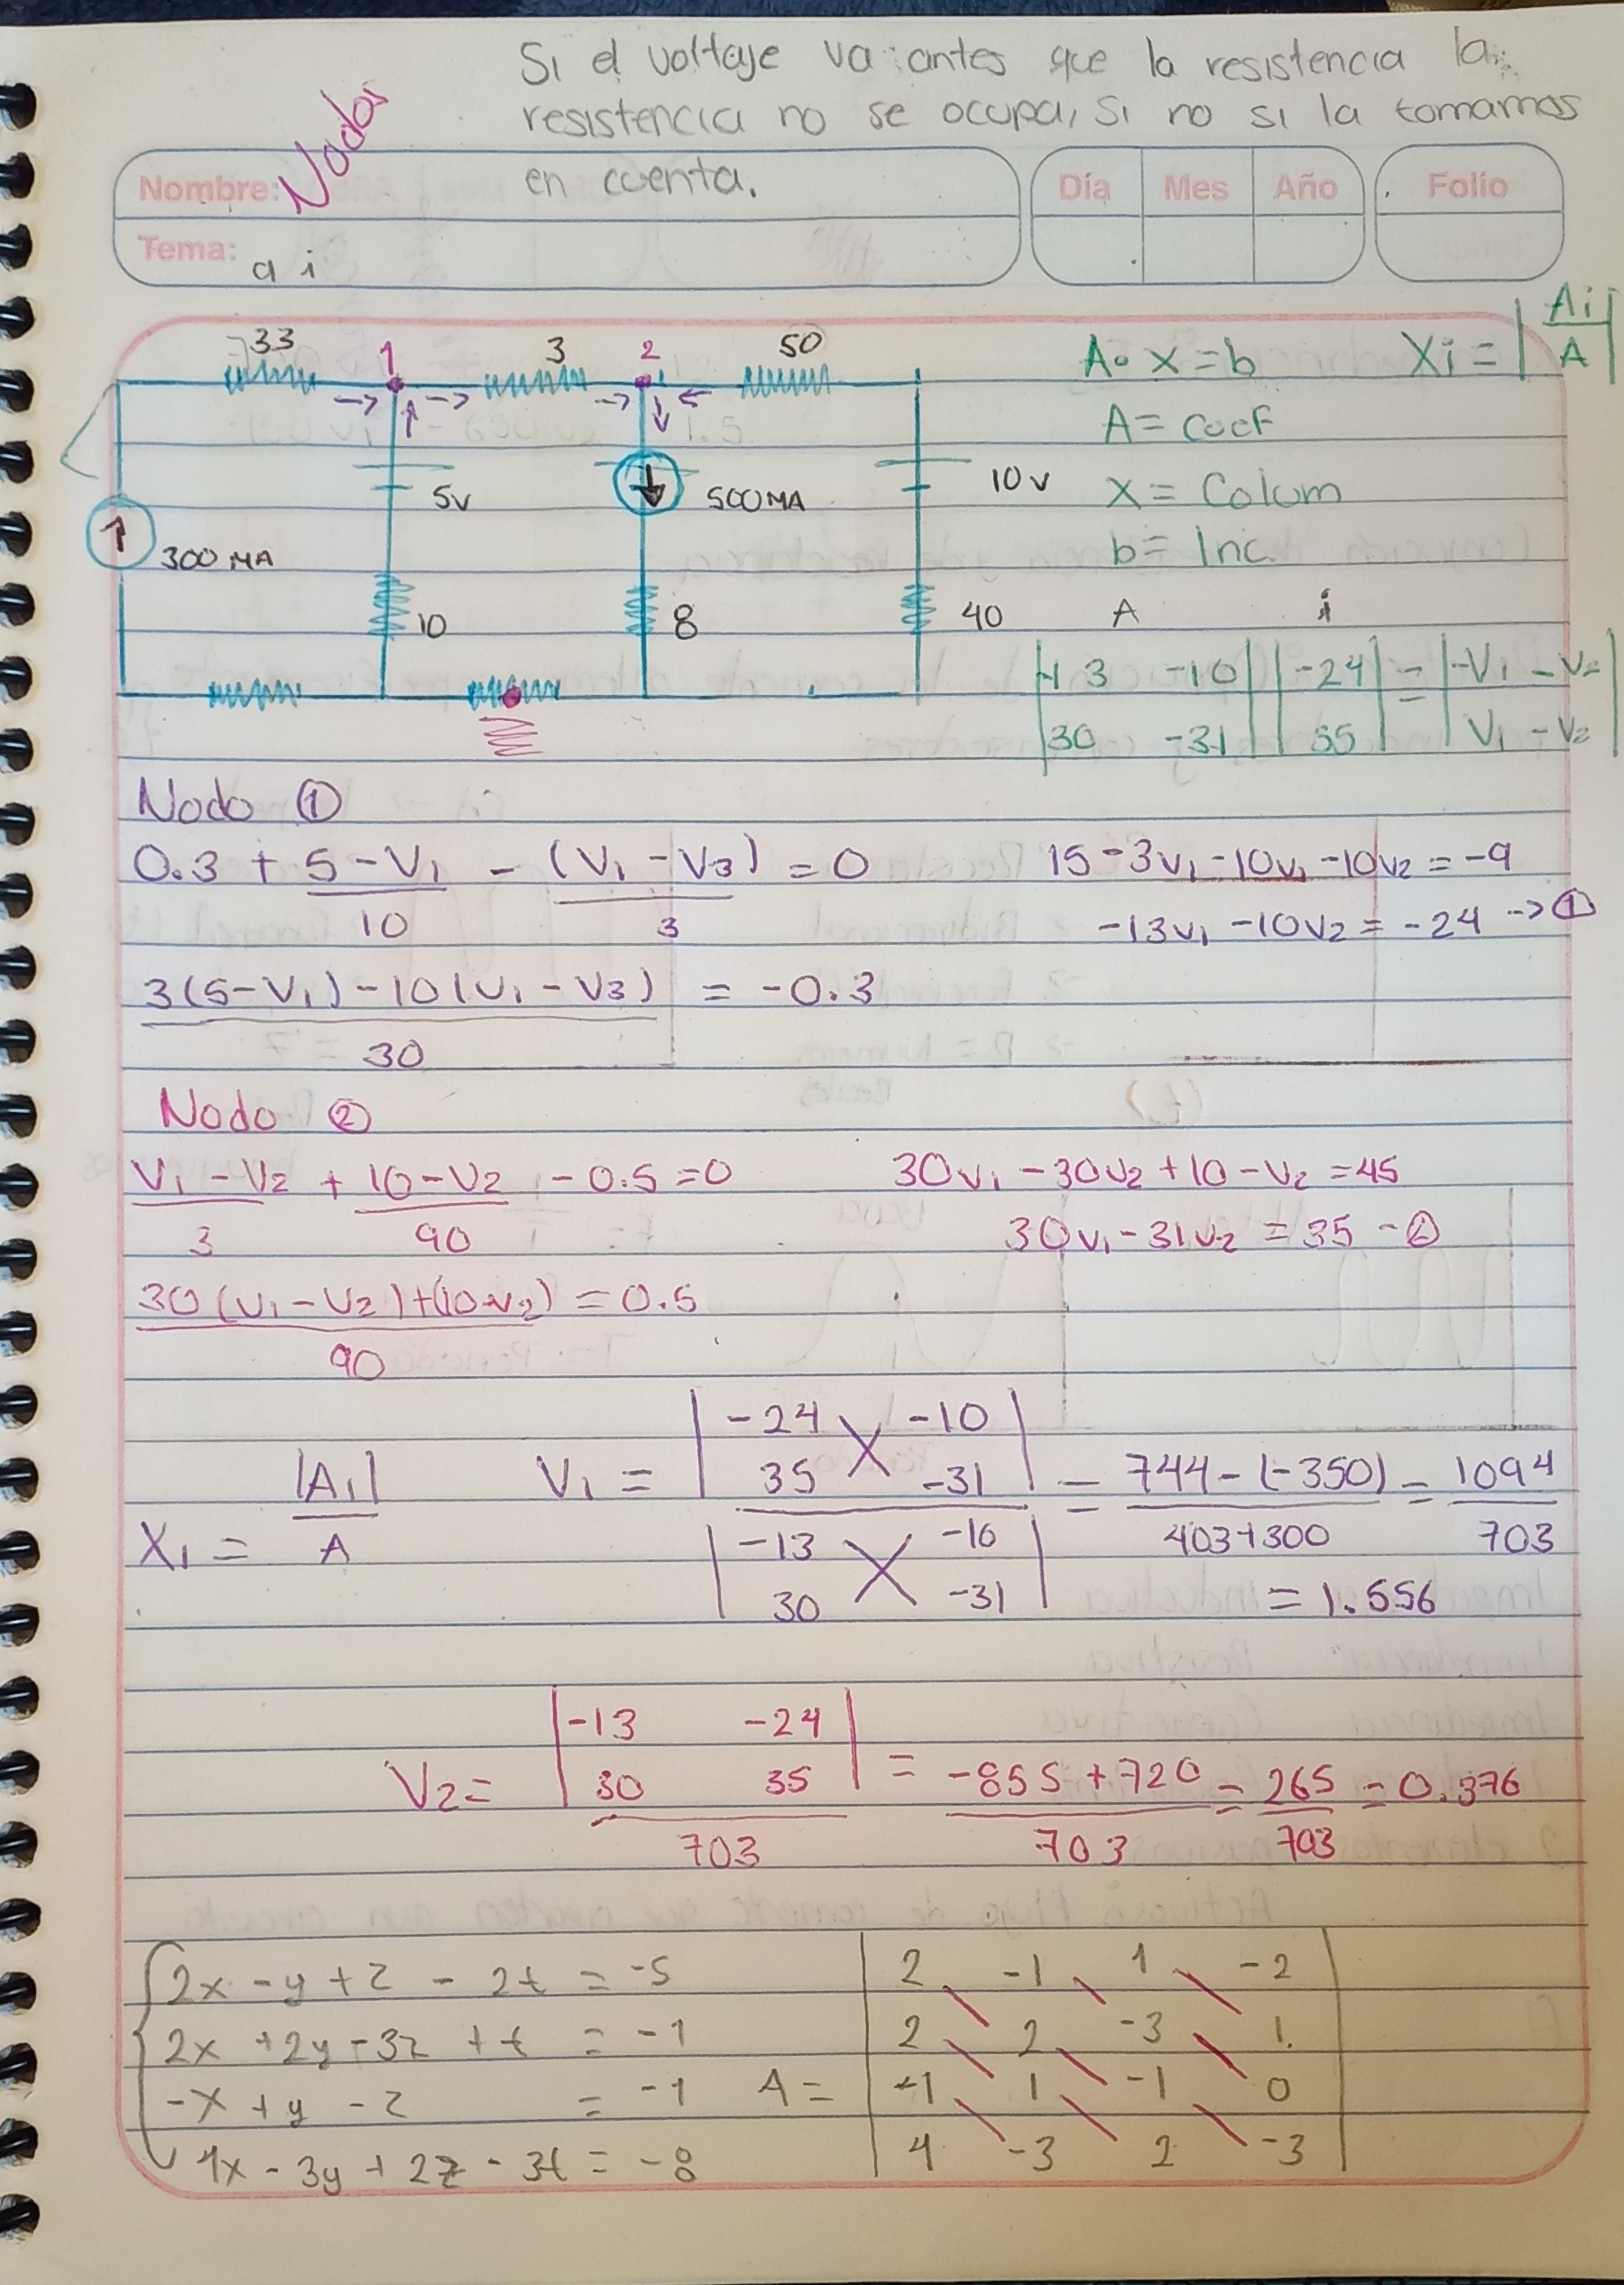 Si el voltaje va antes que la resistencia la
resistencia no se ocupa, si no si la tomamos
en cuenta.
Nodos
Nombre:
Tema: a i
Día Mes Año Folio
33 1 3 2 50
5v 500MA 10v
300MA
10 8 40
A • x = b Xi = |Ai/A|
A = coef
x = Colum
b = Inc.
A i
|-13 -10| |-24| = |-V1 - V2|
|30 -31| |35| |V1 - V2|
Nodo ①
0.3 + (5 - V1)/10 - (V1 - V3)/3 = 0
(3(5-V1) - 10(V1 - V3))/30 = -0.3
15 - 3V1 - 10V1 - 10V2 = -9
-13V1 - 10V2 = -24 -> ①
Nodo ②
(V1 - V2)/3 + (10 - V2)/90 - 0.5 = 0
(30(V1 - V2) + (10-V2))/90 = 0.5
30V1 - 30V2 + 10 - V2 = 45
30V1 - 31V2 = 35 - ②
X1 = |A1|/A
V1 = |-24 -10|
|35 -31|
|-13 -10|
|30 -31|
= (744 - (-350))/(403+300) = 1094/703
= 1.556
V2 = |-13 -24|
|30 35|
703
= (-855 + 720)/703 = 265/703 = 0.376
2x - y + z - 2t = -5
2x + 2y - 3z + t = -1
-x + y - z = -1
4x - 3y + 2z - 3t = -8
A =
|2 -1 1 -2|
|2 2 -3 1|
|-1 1 -1 0|
|4 -3 2 -3|